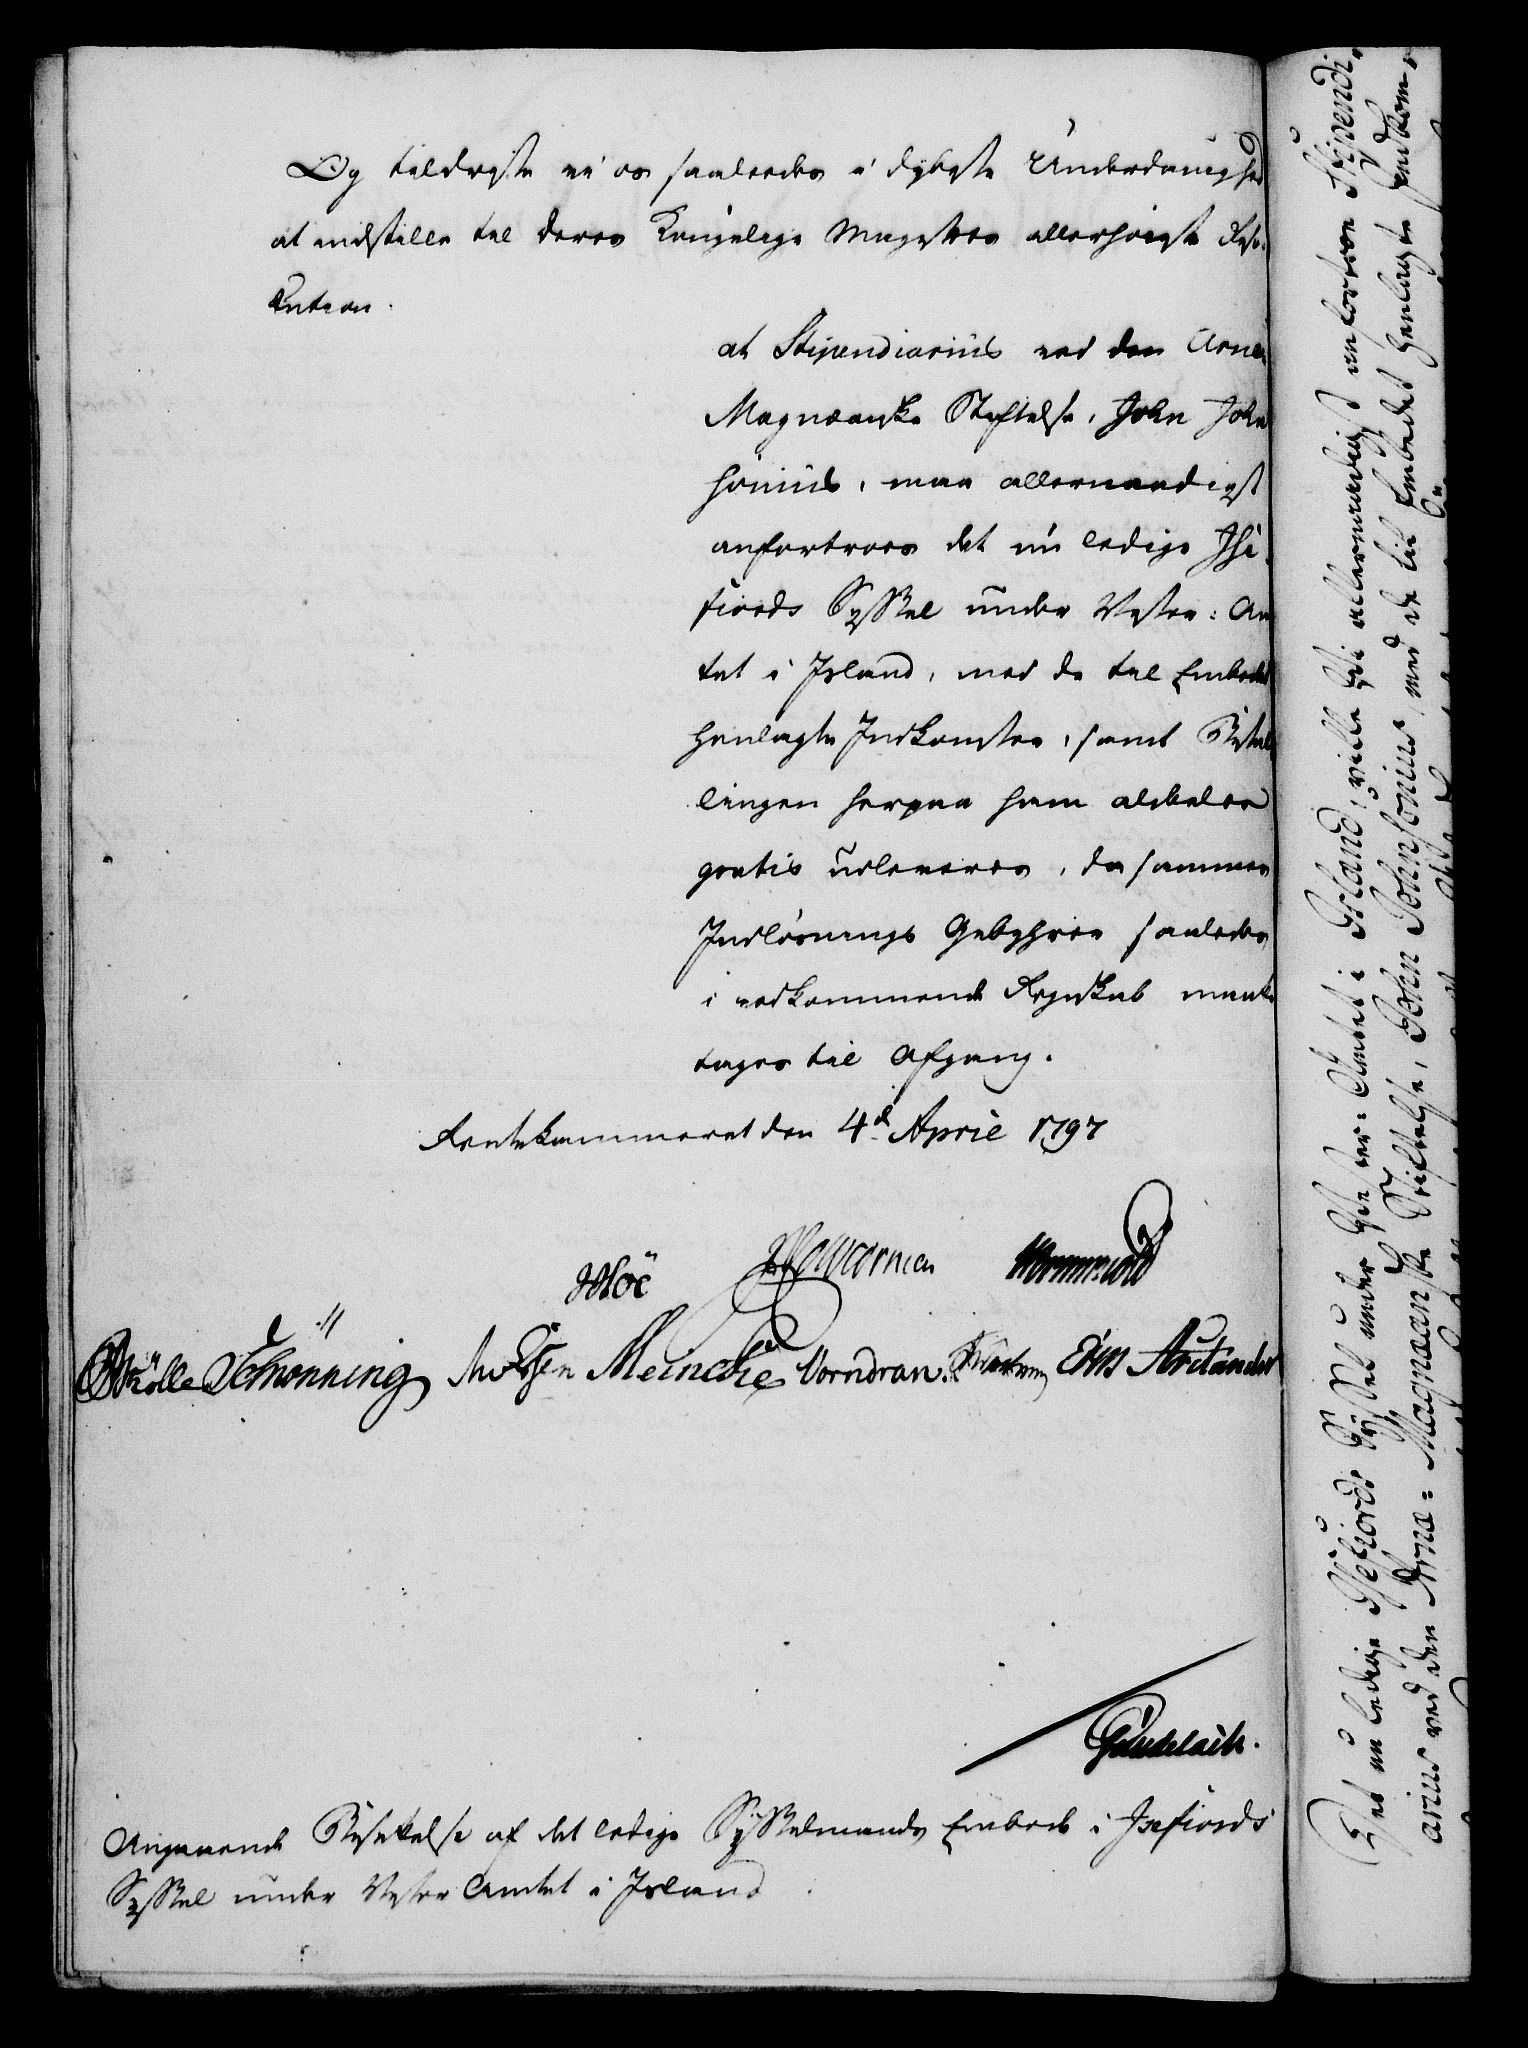 Og tildriste vi os saaledes i dybeste Underdanighed
at indstille til Deres Kongelige Majestæts allerhøieste Reso-
lution.
at Stipendiarius ved den Arnæ
Magnæanske Stiftelse, John John
honius, maa allernaadigst
anfortroes det nu ledige Ise
fiords Syssel under Vester: Am
tet i Island, med de til Embedet
henlagte Indkomster, samt Bestal
lingen herpaa ham aldeles
gratis udleveres, da sammes
Indløsnings Gebyhrer saaledes
i vedkommende Regnskab maatte
tages til Afgang.
Rentekammeret den 4d April 1797
Wormskiold
Schønning Meincke Vorndran. Arctander
Gundelach.
Angaaende Besættelse af det ledige Sysselmands Embede i Isefiords
Syssel under Vester Amtet i Island
Det nu ledige Isefiords Syssel under Vester-Amtet i Island, ville Vi allernaadigst anfortroe Stipendi-
arius ved den Arnæ-Magnæanske Stiftelse, John Johnsonius, med de til Embedet henlagte Indkom-